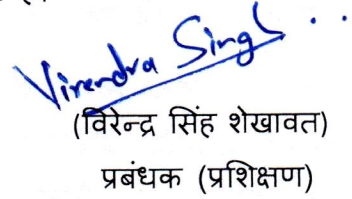 Virendra Singh
(विरेन्द्र सिंह शेखावत)
प्रबंधक (प्रशिक्षण)